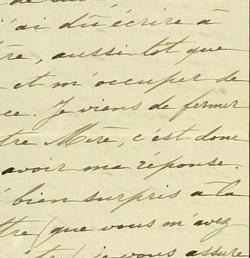 j'ai dû écrire à
aussitot que
et m'occuper de
ce. Je viens de fermer
tre Mère, c'est donc
avoir ma reponse.
bien surpris à la
ttre (que vous m'avez
je vous assure